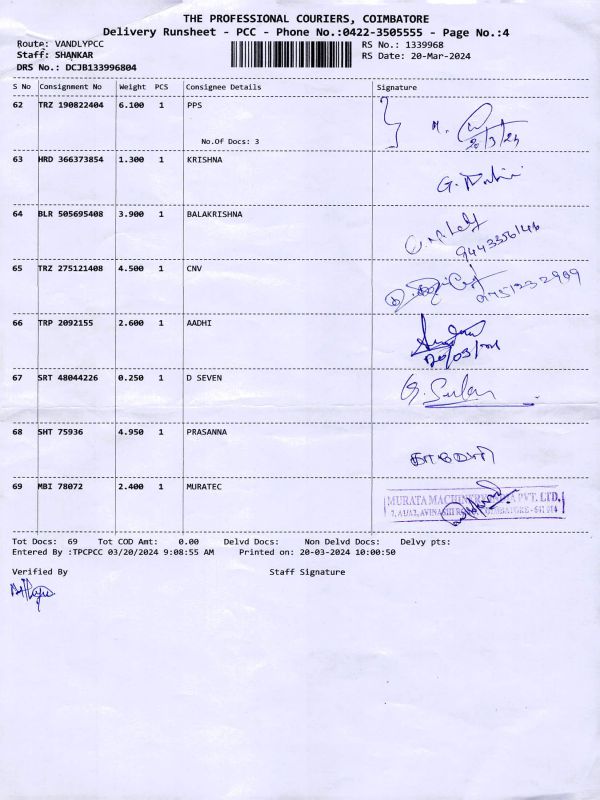 THE PROFESSIONAL COURIERS, COIMBATORE
Delivery Runsheet - PCC - Phone No.:0422-3505555 - Page No.:4
Route: VANDLYPCC RS No.: 1339968
Staff: SHANKAR RS Date: 20-Mar-2024
DRS No.: DCJB133996804
S No Consignment No Weight PCS Consignee Details Signature
62 TRZ 190822404 6.100 1 PPS
No.Of Docs: 3 20/3/24
63 HRD 366373854 1.300 1 KRISHNA
64 BLR 505695408 3.900 1 BALAKRISHNA
65 TRZ 275121408 4.500 1 CNV
66 TRP 2092155 2.600 1 AADHI
67 SRT 48044226 0.250 1 D SEVEN
68 SHT 75936 4.950 1 PRASANNA
69 MBI 78072 2.400 1 MURATEC
MURATA MACHINERY INDIA PVT. LTD.
Tot Docs: 69 Tot COD Amt: 0.00 Delvd Docs: Non Delvd Docs: Delvy pts:
Entered By :TPCPCC 03/20/2024 9:08:55 AM Printed on: 20-03-2024 10:00:50
Verified By Staff Signature